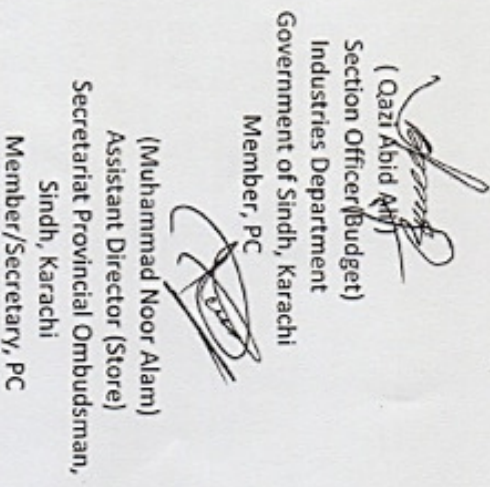 ( Qazi Abid Ali)
Section Officer(Budget)
Industries Department
Government of Sindh, Karachi
Member, PC
(Muhammad Noor Alam)
Assistant Director (Store)
Secretariat Provincial Ombudsman,
Sindh, Karachi
Member/Secretary, PC